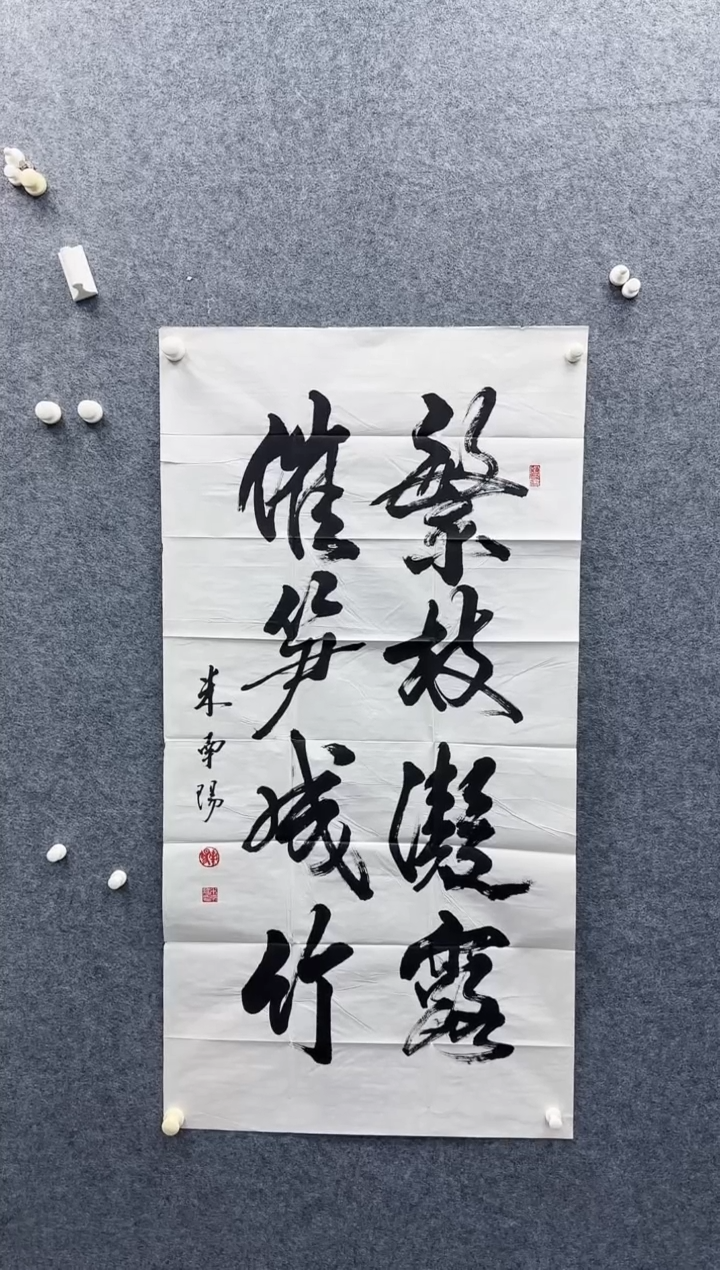 繁枝凝露
催笋成竹
朱雨陽